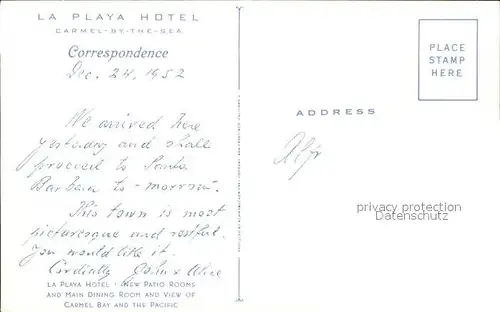 LA PLAYA HOTEL
CARMEL-BY-THE-SEA
Correspondence
Dec. 24, 1952
We arrived here
yesterday and shall
proceed to Santa
Barbara to-morrow.
This town is most
picturesque and restful.
You would like it.
Cordially John & Alice
LA PLAYA HOTEL · NEW PATIO ROOMS
AND MAIN DINING ROOM AND VIEW OF
CARMEL BAY AND THE PACIFIC
PLACE
STAMP
HERE
ADDRESS
privacy protection
Datenschutz